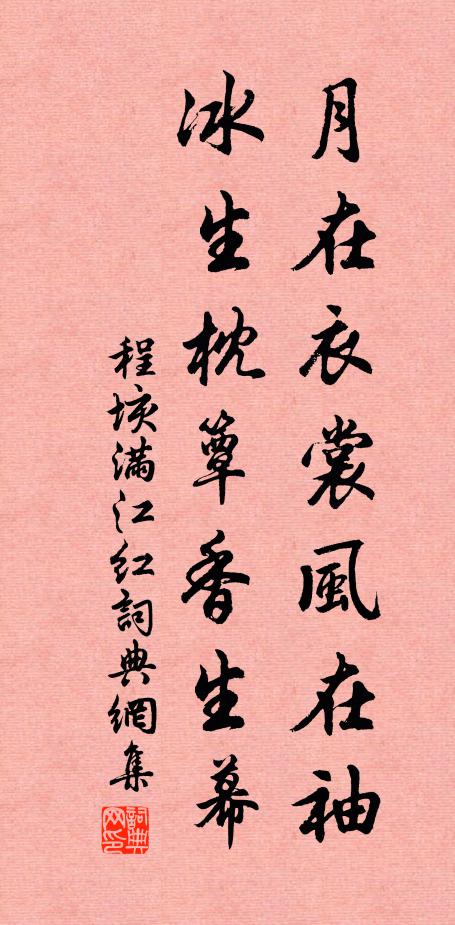 月在衣裳風在袖
冰生枕簟香生幕
程垓滿江红詞典網集
詞典
网印